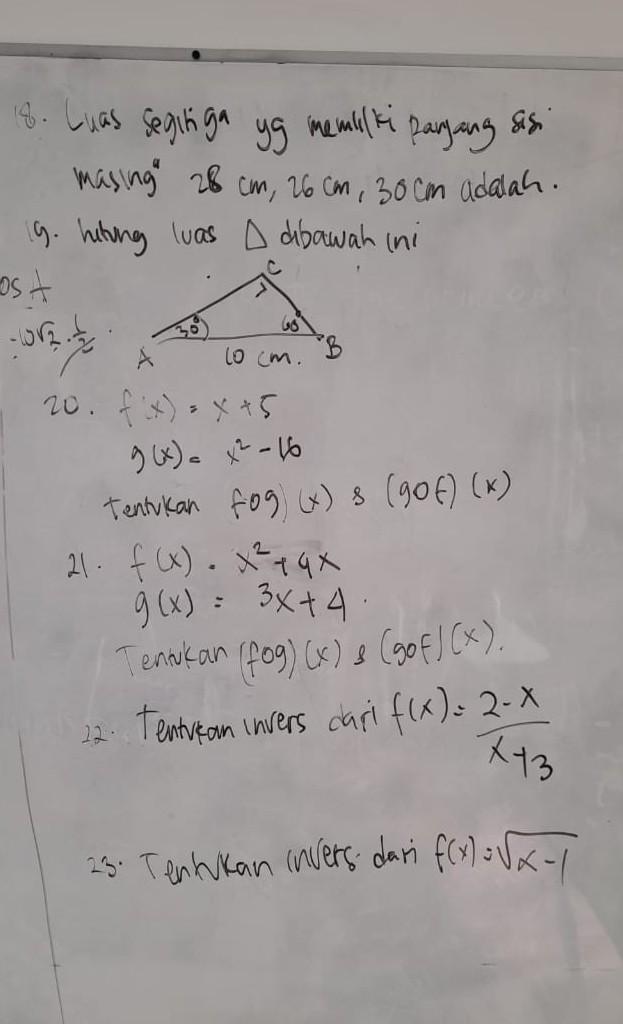 18. Luas segitiga yg memiliki panjang sisi
masing" 28 cm, 26 cm, 30 cm adalah.
19. hitung luas △ dibawah ini
os A
C
-10√2 . 1/2
30°
60°
A
10 cm.
B
20. f(x) = x + 5
g(x) = x² - 16
tentukan fog) (x) & (gof) (x)
21. f(x) = x² + 4x
g(x) = 3x + 4.
Tentukan (fog) (x) & (gof) (x).
22. Tentukan invers dari f(x) = 2-x / x+3
23. Tentukan invers dari f(x) = √x-1